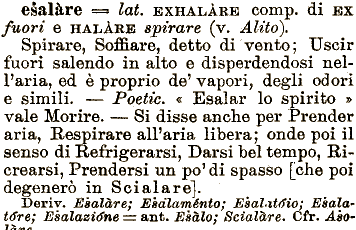 eṡalàre = lat. EXHALÀRE comp. di EX
fuori e HALÀRE spirare (v. Alito).
Spirare, Soffiare, detto di vento; Uscir
fuori salendo in alto e disperdendosi nel-
l'aria, ed è proprio de' vapori, degli odori
e simili. — Poetic. « Esalar lo spirito »
vale Morire. — Si disse anche per Prender
aria, Respirare all'aria libera; onde poi il
senso di Refrigerarsi, Darsi bel tempo, Ri-
crearsi, Prendersi un po' di spasso [che poi
degenerò in Scialare].
Deriv. Eṡalàre; Eṡalaménto; Eṡalatóio; Eṡala-
tóre; Eṡalazióne = ant. Eṡàlo; Scialàre. Cfr. Aṡo-